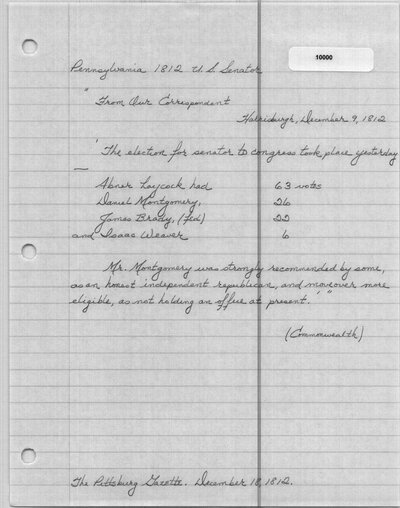 10000
Pennsylvania 1812 U.S. Senator
" From Our Correspondent
Harrisburgh, December 9, 1812
' The election for senator to congress took place yesterday
—
Abner Laycock had 63 votes
Daniel Montgomery, 26
James Brady, (Fed) 22
and Isaac Weaver 6
Mr. Montgomery was strongly recommended by some,
as an honest independent republican, and moreover more
eligible, as not holding an office at present.' "
(Commonwealth)
The Pittsburg Gazette. December 18, 1812.